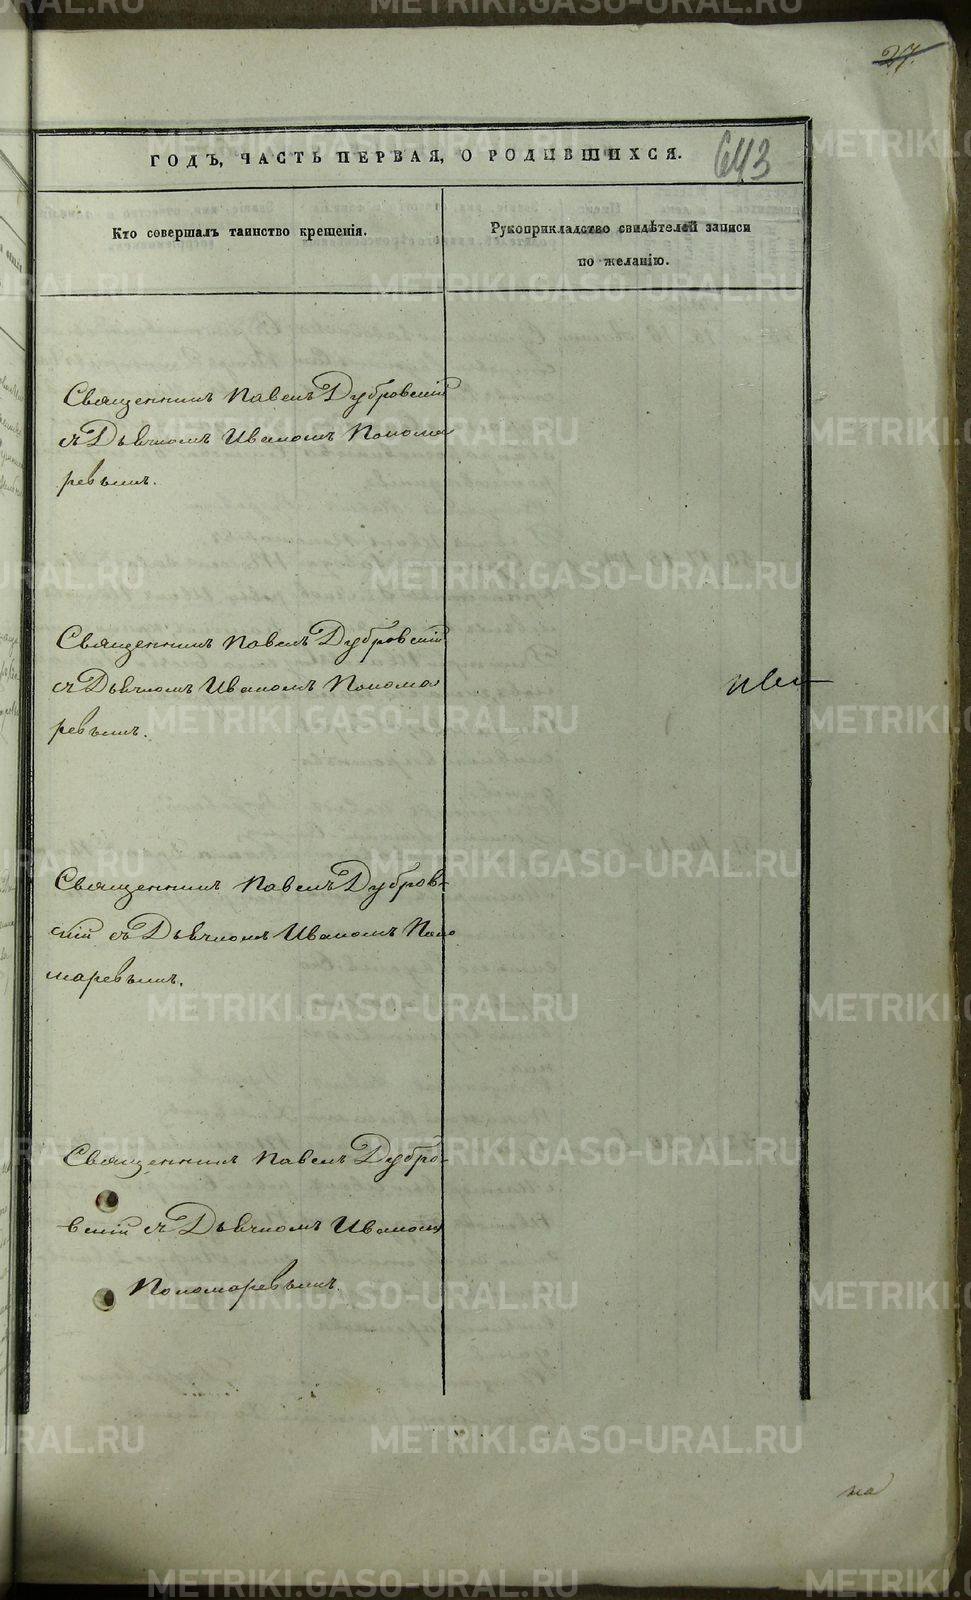 27.
ГОДЪ, ЧАСТЬ ПЕРВАЯ, О РОДИВШИХСЯ.
643
Кто совершалъ таинство крещенія.
Рукоприкладство свидѣтелей записи
по желанію.
Священникъ Павелъ Дубровскій
съ Дьячкомъ Иваномъ Понома
ревымъ.
Священникъ Павелъ Дубровскій
съ Дьячкомъ Иваномъ Понома
ревымъ.
Священникъ Павелъ Дубров-
скій съ Дьячкомъ Иваномъ Поно
маревымъ.
Священникъ Павелъ Дубро-
вскій съ Дьячкомъ Иваномъ
Пономаревымъ.
METRIKI.GASO-URAL.RU